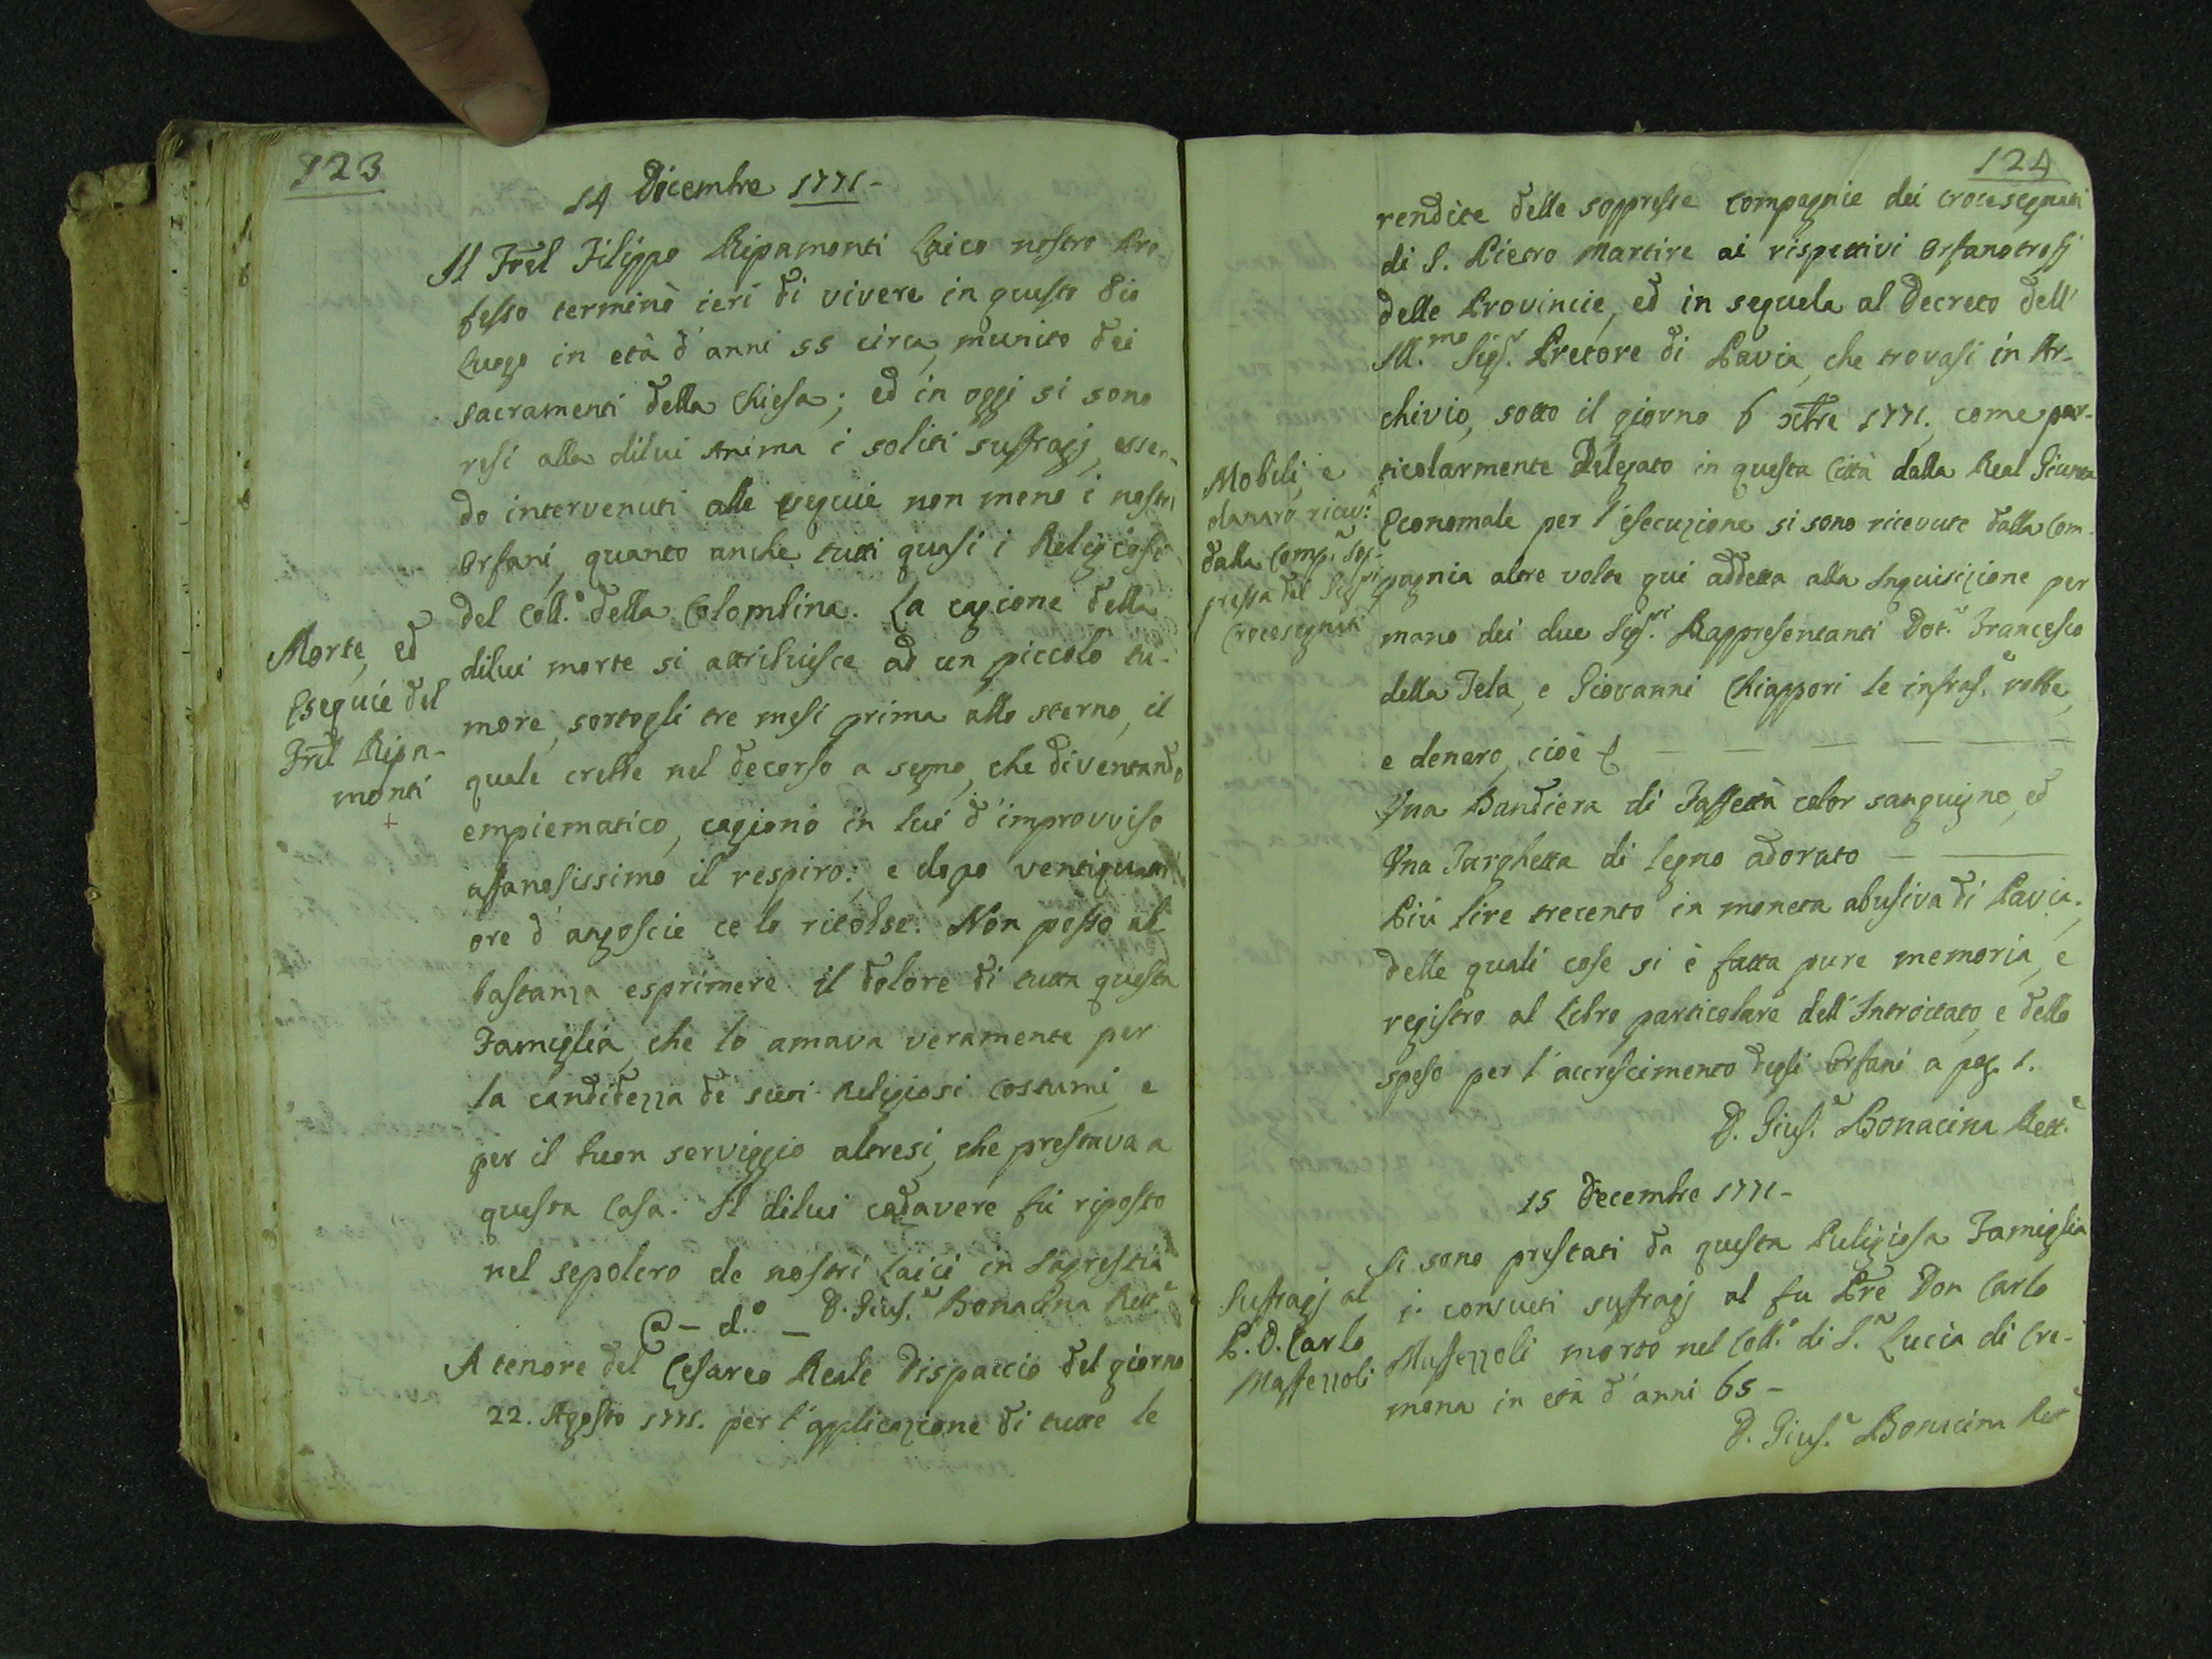 123
14 Dicembre 1771 -
Il Frel Filippo Ripamonti Laico nostro Pro-
fesso terminò ieri di vivere in questo Pio
Luogo in età d'anni 55 circa, munito dei
Sacramenti della Chiesa; ed in oggi si sono
resi alla dilui Anima i soliti suffragj, essen-
do intervenuti alle esequie non meno i nostri
Orfani, quanto anche tutti quasi i Religiosi
del Coll.o della Colombina. La cagione della
Morte, ed
Esequie del
Frel Ripa-
monti
+
dilui morte si attribuisce ad un piccolo tu-
more, sortogli tre mesi prima allo sterno, il
quale crebbe nel decorso a segno, che diventando
empiematico, cagionò in lui d'improvviso
affanosissimo il respiro: e dopo ventiquattr
ore d'angoscie ce lo ritolse. Non posso ab-
bastanza esprimere il dolore di tutta questa
Famiglia, che lo amava veramente per
la candidezza de suoi Religiosi costumi, e
per il buon serviggio altresì, che prestava a
questa Casa. Il dilui cadavere fù riposto
nel sepolcro de nostri Laici in Sagrestia
D. Gius.e Bonacina Rett.e
@ - d.o -
A tenore del Cesareo Reale Dispaccio del giorno
22. Agosto 1771. per l'applicazione di tutte le
124
rendite delle soppresse Compagnie dei Crocesegnati
di S. Pietro Martire ai rispettivi Orfanotrofj
delle Provincie, ed in sequela al Decreto dell'
Ill.mo Sig.r Pretore di Pavia, che trovasi in Ar-
chivio, sotto il giorno 6 xbre 1771, come par-
Mobili, e
danaro ricav.o
dalla Comp.a sop-
pressa del Sig.ri
Crocesegnati
ticolarmente Delegato in questa Città dalla Real Giunta
Economale per l'esecuzione si sono ricevute dalla Com-
pagnia altre volte qui addetta alla Inquisizione per
mano dei due Sig.ri Rappresentanti Dot.r Francesco
della Tela, e Giovanni Chiappori le infras.e robbe,
e denaro, cioè
Una Bandiera di Taffettà color sanguigno, ed
Una Targhetta di legno adorato -
Più lire trecento in moneta abusiva di Pavia;
delle quali cose si è fatta pure memoria, e
registro al Libro particolare dell'Introitato, e dello
speso per l'accrescimento degli Orfani a pag. 1.
D. Gius.e Bonacina Rett.e
15 Decembre 1771 -
Suffragj al
P. D. Carlo
Massezzoli
Si sono prestati da questa Religiosa Famiglia
i consueti suffragj al fu Pre Don Carlo
Massezzoli morto nel Coll.o di S.a Lucia di Cre-
mona in età d'anni 65 -
D. Gius.e Bonacina Ret.e